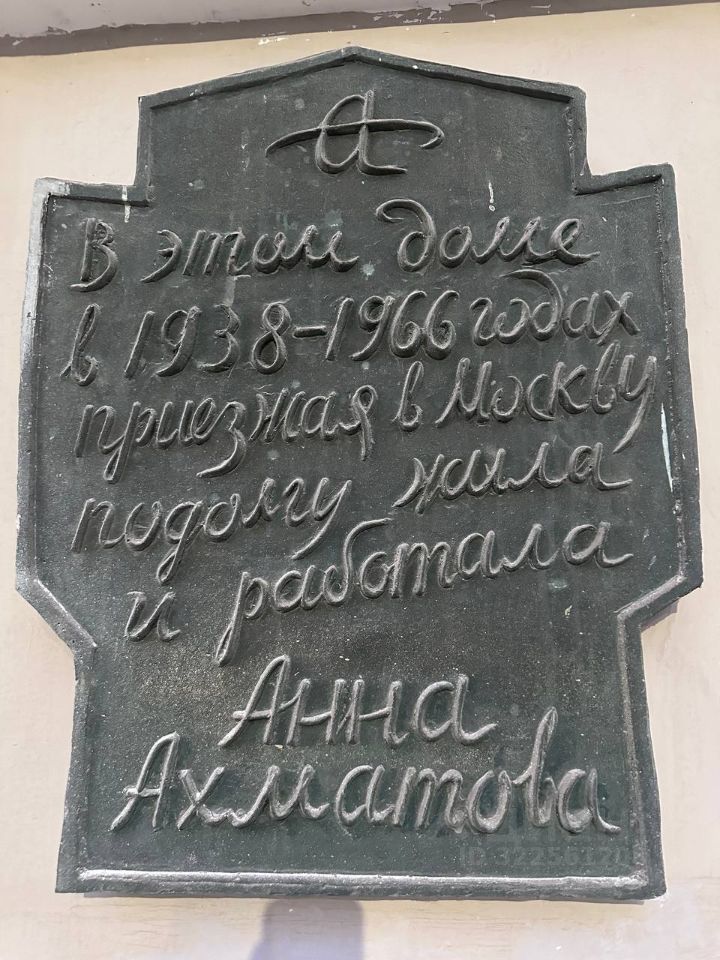 а
В этом доме
в 1938-1966 годах
приезжая в Москву
подолгу жила
и работала
Анна
Ахматова